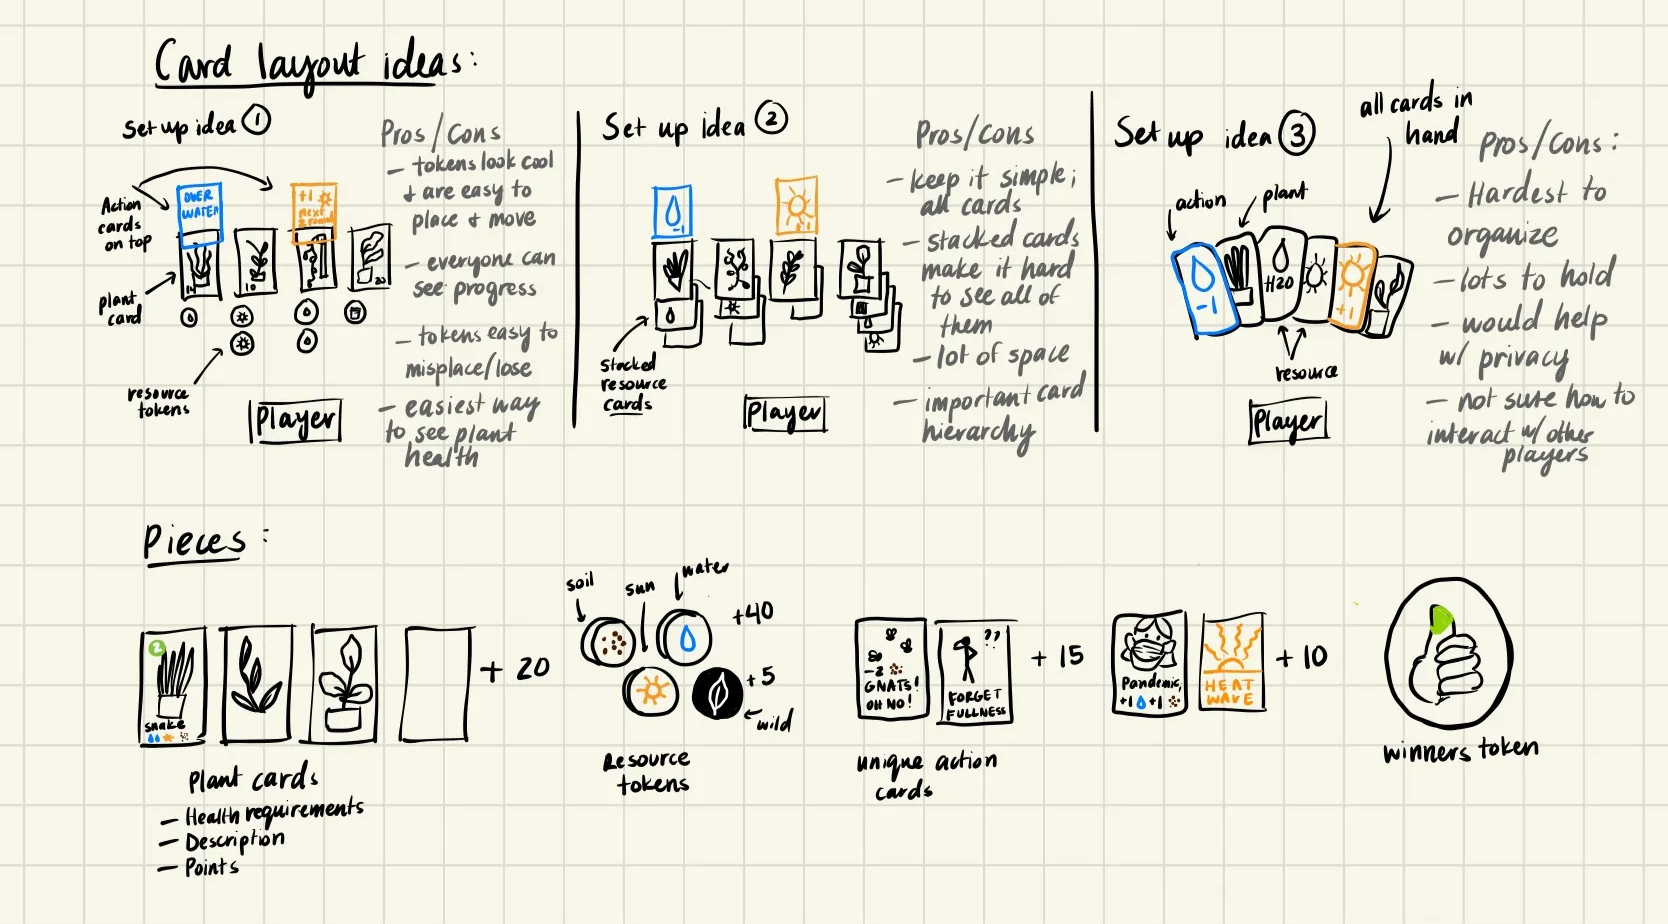 Card layout ideas:
Set up idea 1
Pros/Cons
- tokens look cool
+ are easy to
place + move
- everyone can
see progress
- tokens easy to
misplace/lose
- easiest way
to see plant
health
Action
cards
on top
OVER
WATER
+1
next
round
plant
card
10
20
resource
tokens
Player
Set up idea 2
Pros/Cons
- keep it simple;
all cards
- stacked cards
make it hard
to see all of
them
- lot of space
- important card
hierarchy
-1
+1
Stacked
resource
cards
Player
Set up idea 3
all cards in
hand
Pros/Cons:
- Hardest to
organize
- lots to hold
- would help
w/ privacy
- not sure how to
interact w/ other
players
action
plant
-1
H20
+1
resource
Player
Pieces:
2
snake
+ 20
Plant cards
- Health requirements
- Description
- Points
soil
sun
water
+40
+5
wild
Resource
tokens
-2
GNATS!
OH NO!
??
FORGET
FULLNESS
+ 15
unique action
cards
Pandemic,
+1 +1
HEAT
WAVE
+ 10
winners token